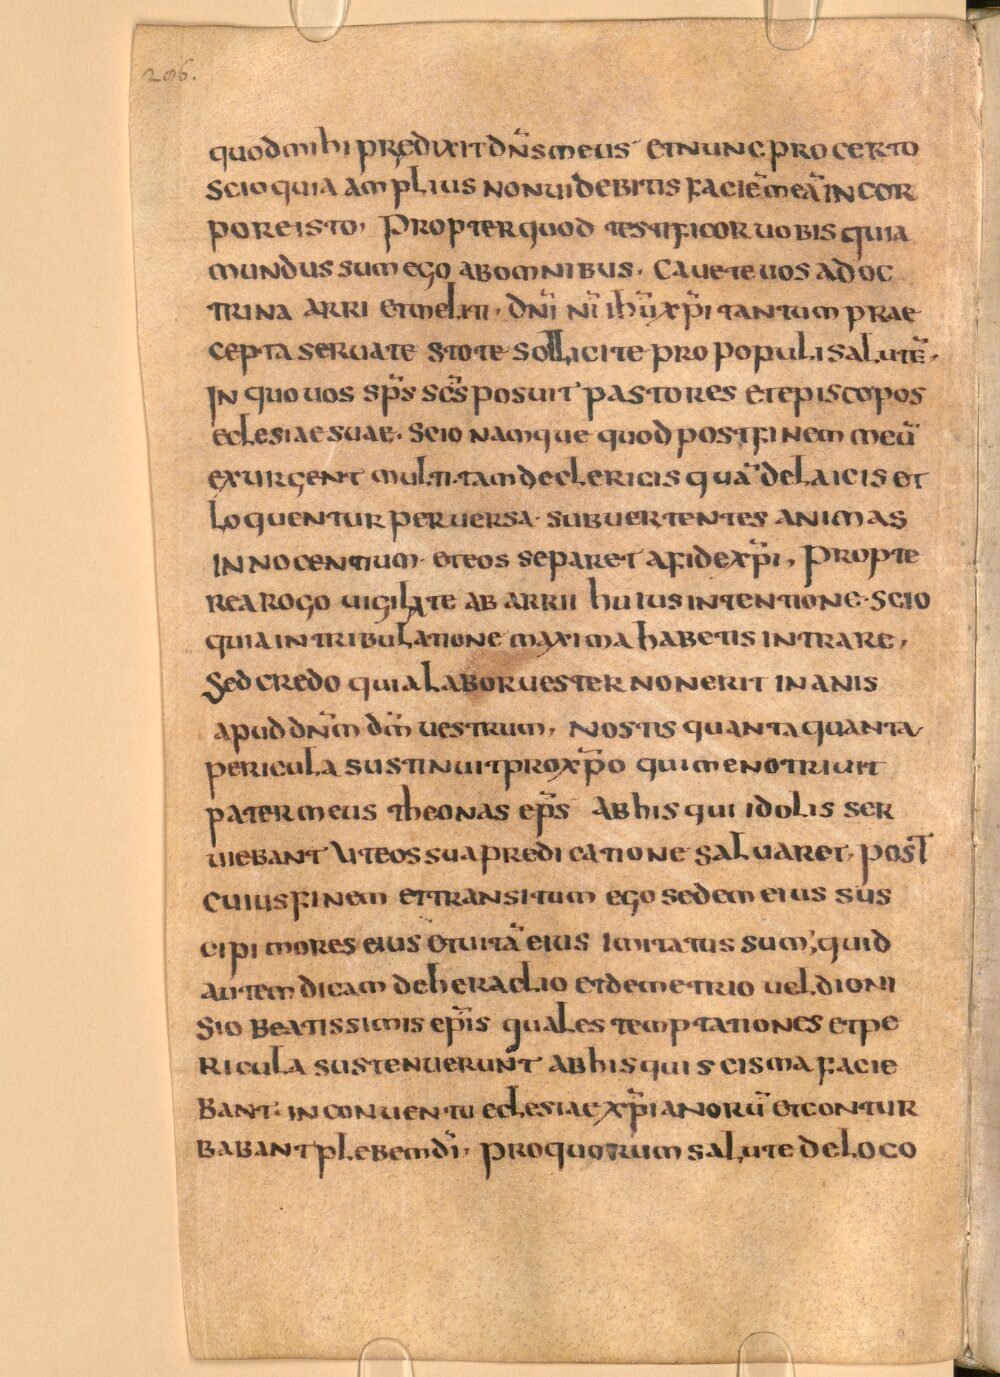 206.
quod mihi prędixit dn̄s meus et nunc pro certo
scio quia amplius non uidebitis faciē meā in cor
pore isto, Propter quod testificor uobis quia
mundus sum ego ab omnibus. Cauete uos a doc
trina arri et meliti. dn̄i n̄i ih̄u xp̄i tantum prae
cepta seruate stote sollicite pro populi salutē,
In quo uos sp̄s sc̄s posuit pastores et episcopos
eclesiae suae. Scio namque quod post finem meū
exurgent multi. tam de clericis quā de laicis et
loquentur peruersa. subuertentes animas
innocentium. et eos separet a fide xp̄i, Propte
rea rogo uigilate ab arrii huius intentione. Scio
quia in tribulatione maxima habetis intrare,
Sed credo quia labor uester non erit inanis
apud dn̄m dm̄ uestrum, Nostis quanta quanta
pericula sustinuit pro xp̄o qui me notriuit
pater meus theonas ep̄s Ab his qui idolis ser
uiebant Ut eos sua predicatione saluaret. post
cuius finem et transitum ego sedem eius sus
cipi mores eius et uitā eius imitatus sum, quid
autem dicam de heraclio et demetrio uel dioni
sio Beatissimis ep̄is quales temptationes et pe
ricula sustenuerunt ab his qui scisma facie
bant. in conuentu eclesiae xp̄ianorū et contur
babant plebem dī, pro quorum salute de loco